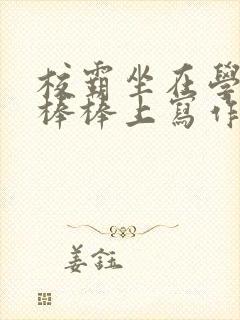 校霸坐在學
棒棒上寫作
姜鈺